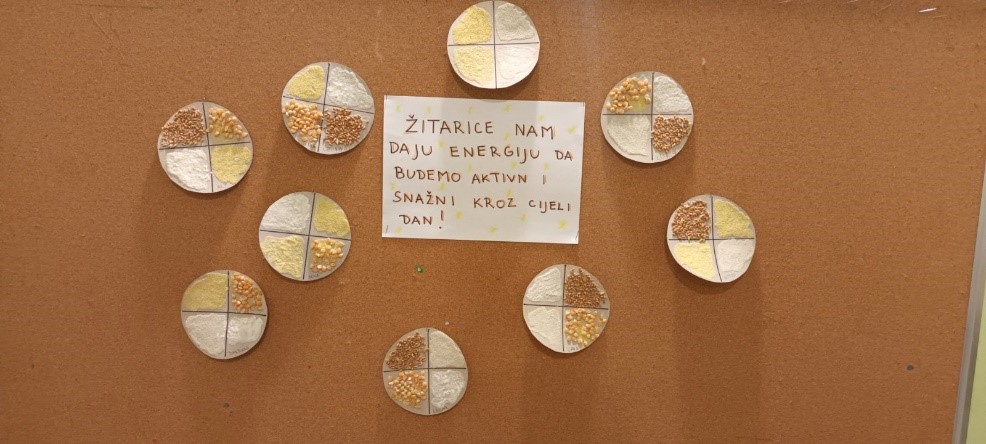 ŽITARICE NAM
DAJU ENERGIJU DA
BUDEMO AKTIVN I
SNAŽNI KROZ CIJELI
DAN!